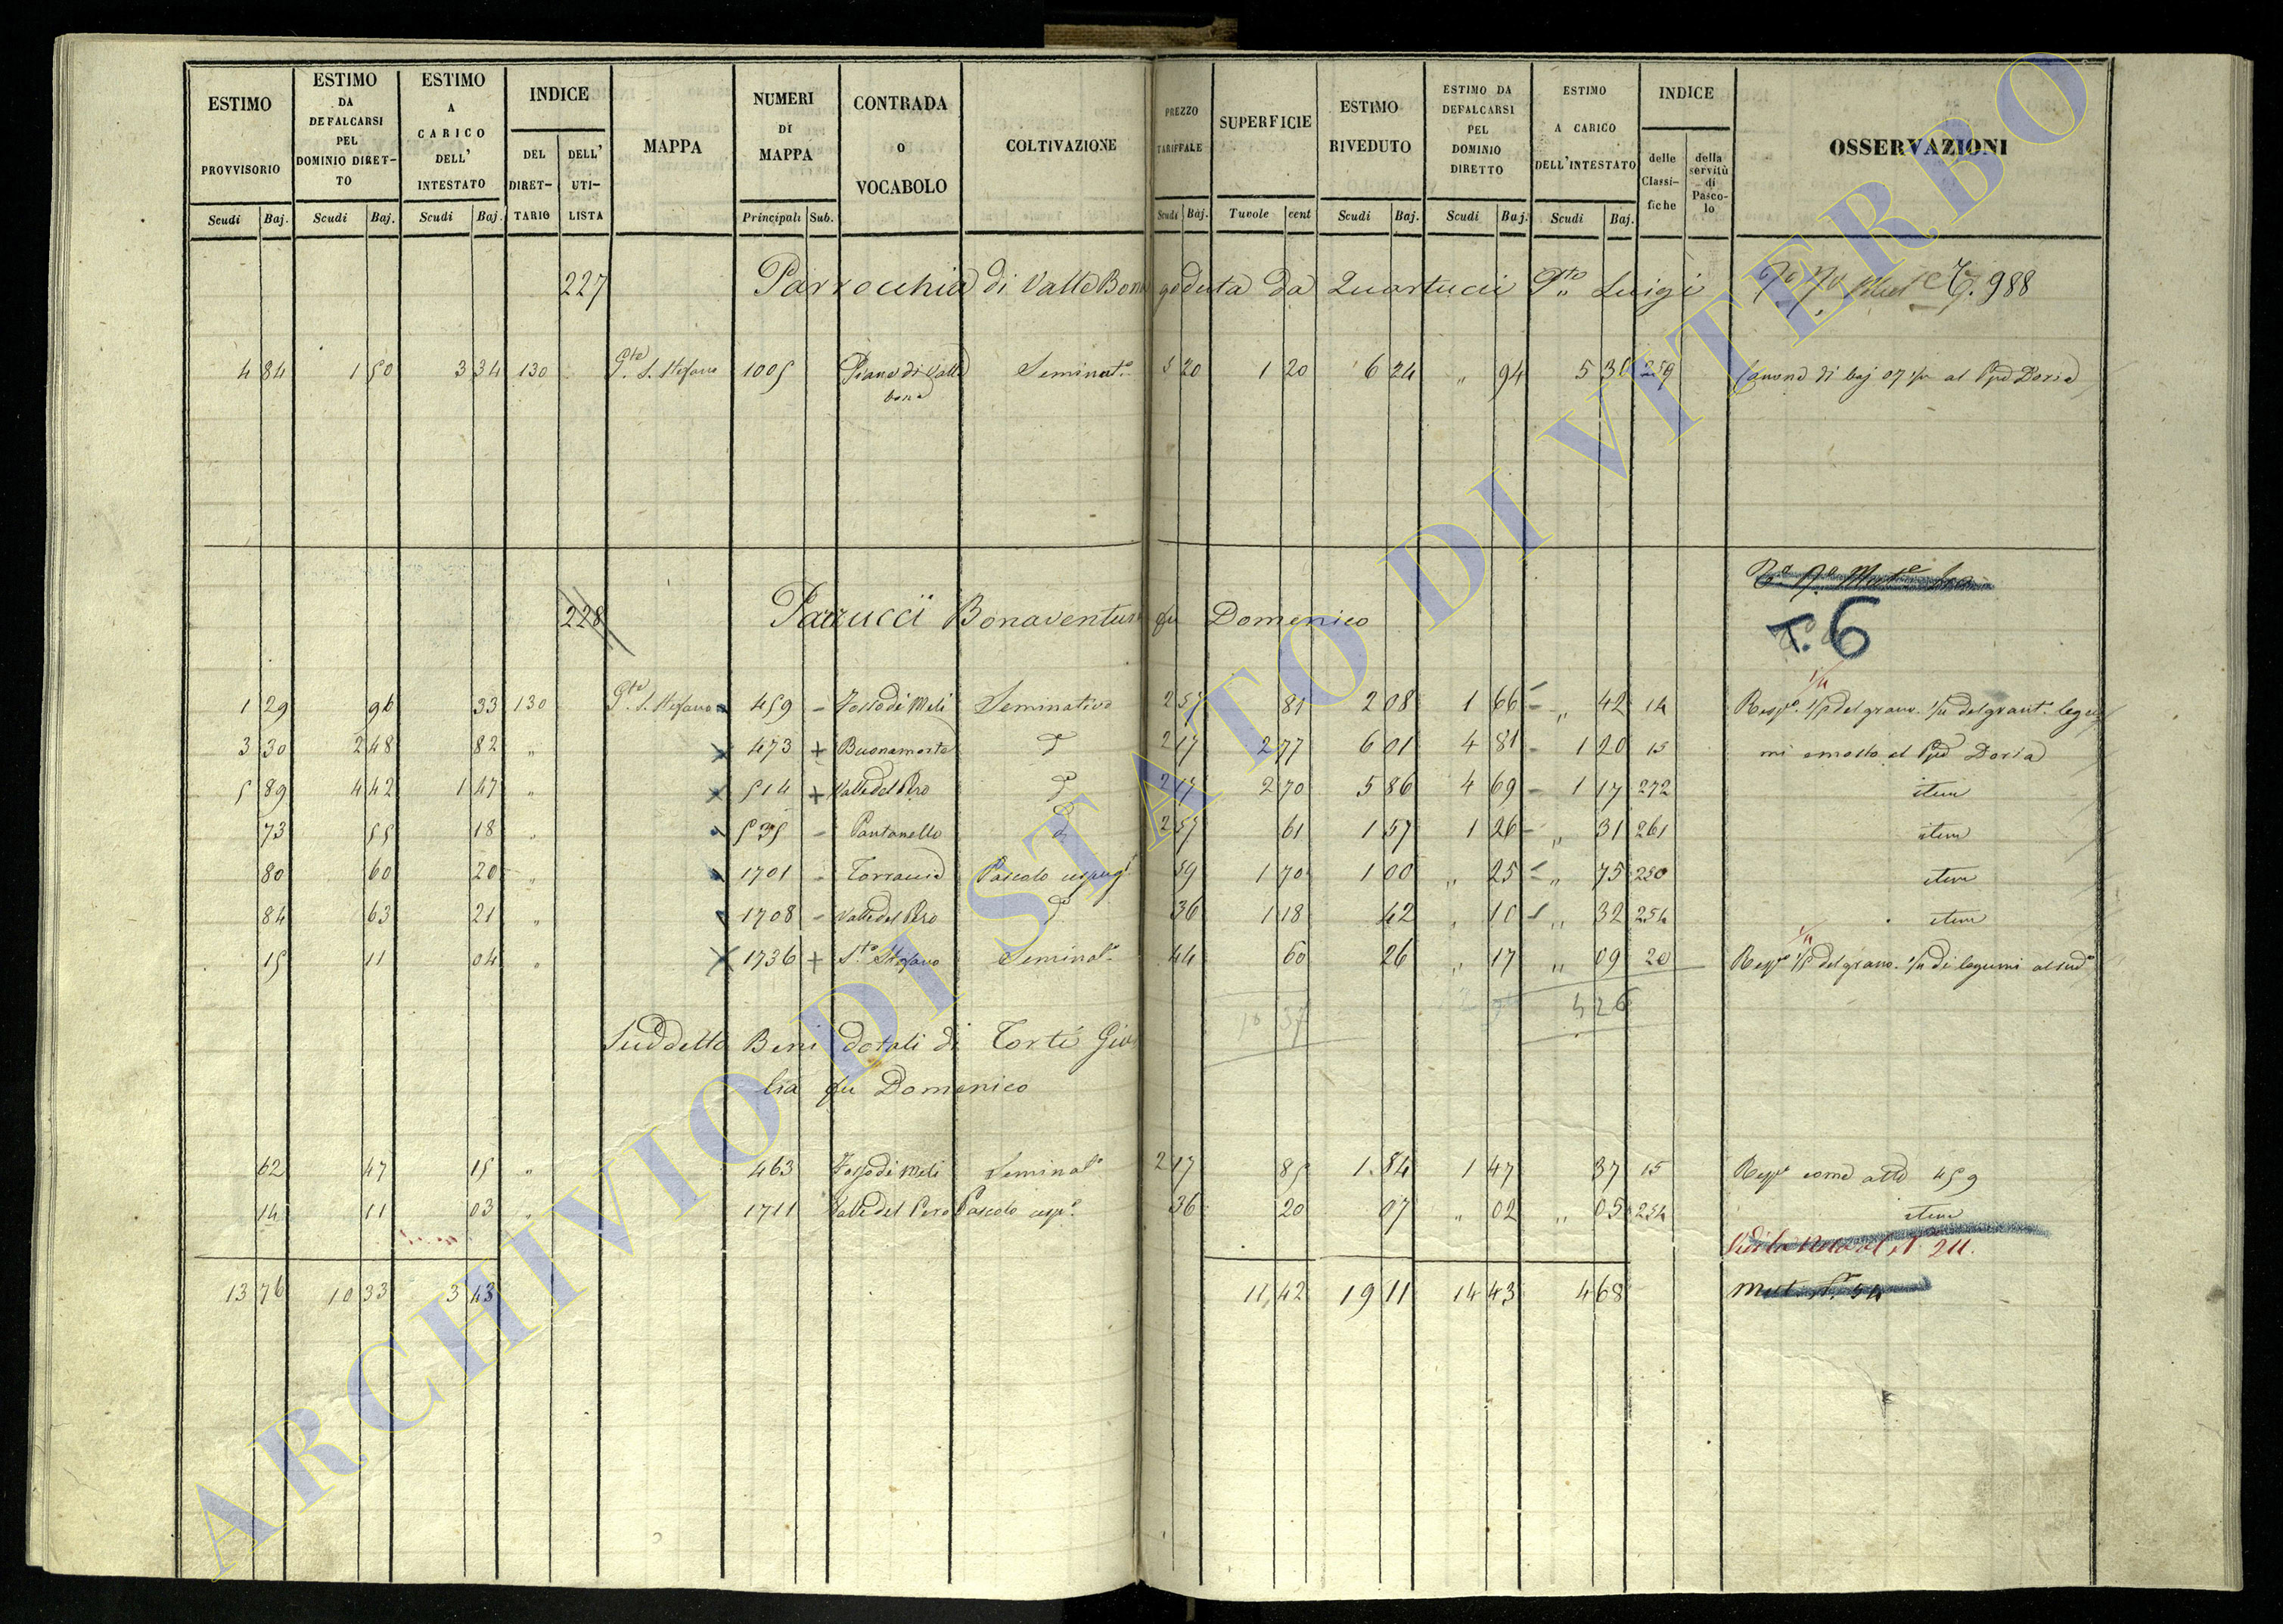 ESTIMO PROVVISORIO Scudi Baj.
ESTIMO DA DEFALCARSI PEL DOMINIO DIRET- TO Scudi Baj.
ESTIMO A CARICO DELL' INTESTATO Scudi Baj.
INDICE DEL DIRET- TARIO DELL' UTI- LISTA
MAPPA
NUMERI DI MAPPA Principali Sub.
CONTRADA o VOCABOLO
COLTIVAZIONE
PREZZO TARIFFALE Scudi Baj.
SUPERFICIE Tavole cent
ESTIMO RIVEDUTO Scudi Baj.
ESTIMO DA DEFALCARSI PEL DOMINIO DIRETTO Scudi Baj.
ESTIMO A CARICO DELL'INTESTATO Scudi Baj.
INDICE delle Classi- fiche della servitù di Pasco- lo
OSSERVAZIONI
227 Parrocchia di Valle Bona goduta da Quartucci Luigi 988
4 84 1 50 3 34 130 S. Stefano 1005 Piano di Valle bona Seminato 5 20 1 20 6 24 „ 94 5 30 259 Canone di baj 07 al Ppe Doria
228 Parrucci Bonaventura fu Domenico
T. 6
1 29 96 33 130 S. Stefano 459 - Fosso di Meli Seminativo 2 57 81 2 08 1 66 - „ 42 14 Rispa 1/5 del grano
3 30 2 48 82 „ x 473 + Buonamorte d 2 17 2 77 6 01 4 81 - 1 20 15 al Ppe Doria
5 89 4 42 1 47 „ x 514 + Valle del Pero d 2 17 2 70 5 86 4 69 - 1 17 272 item
73 55 18 „ 535 - Pantanello d 2 57 61 1 57 1 26 - „ 31 261 item
80 60 20 „ 1701 - Pascolo 59 1 70 1 00 „ 25 - „ 75 250 item
84 63 21 „ 1708 - Valle del Pero d 36 1 18 42 „ 10 - „ 32 254 item
15 11 04 „ x 1736 + Sto Stefano Seminato 44 60 26 „ 17 „ 09 20 Rispa 1/5 del grano di legumi al sudo
10 37 4 26
Suddetto Beni dotali di Torti Giu
lia fu Domenico
62 47 15 „ 463 Fosso di Meli Seminato 2 17 85 1. 84 1 47 37 15 Rispa come al 459
14 11 03 „ 1711 Valle del Pero Pascolo cespo 36 20 07 „ 02 „ 05 254 item
211.
13 76 10 33 3 43 11, 42 19 11 14 43 4 68
Mut. N. 54
ARCHIVIO DI STATO DI VITERBO